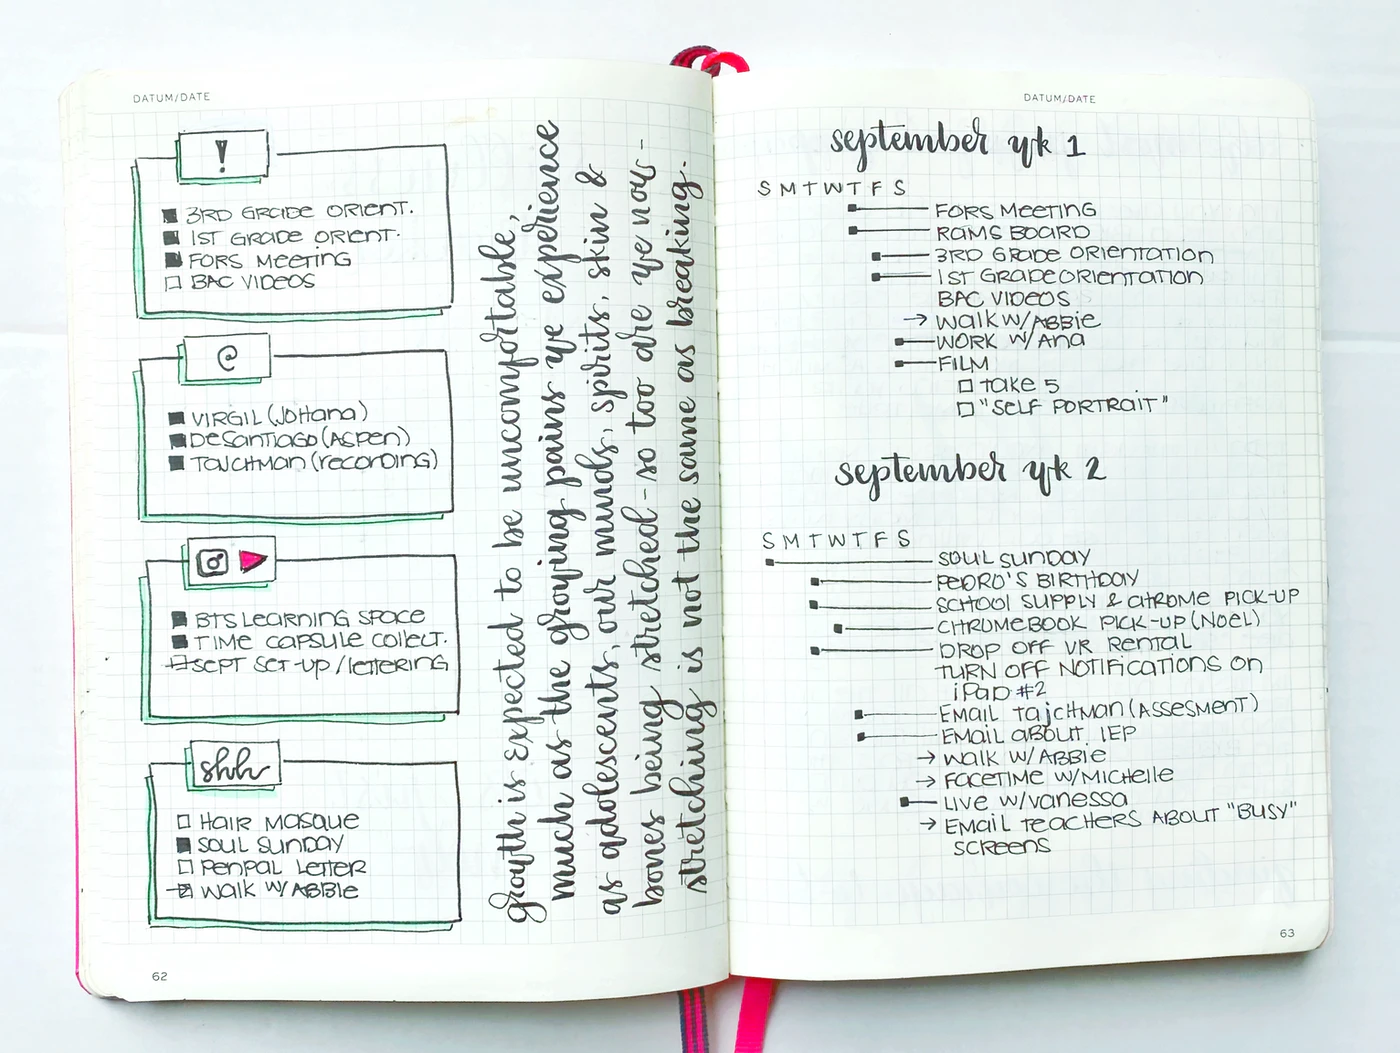 DATUM/DATE
!
3RD GRADE ORIENT.
1ST GRADE ORIENT.
FORS MEETING
BAC VIDEOS
@
VIRGIL (JOHANA)
DESANTIAGO (ASPEN)
TAJCHMAN (RECORDING)
BTS LEARNING SPACE
TIME CAPSULE COLLECT.
SEPT SET-UP/LETTERING
shh
HAIR MASQUE
SOUL SUNDAY
PENPAL LETTER
WALK W/ABBIE
growth is expected to be uncomfortable,
much as the growing pains we experience
as adolescents, our minds, spirits, skin &
bones being stretched - so too are we now -
stretching is not the same as breaking.
62
DATUM/DATE
september wk 1
S M T W T F S
FORS MEETING
RAMS BOARD
3RD GRADE ORIENTATION
1ST GRADE ORIENTATION
BAC VIDEOS
WALK W/ABBIE
WORK W/ANA
FILM
TAKE 5
"SELF PORTRAIT"
september wk 2
S M T W T F S
SOUL SUNDAY
PEDRO'S BIRTHDAY
SCHOOL SUPPLY & CHROME PICK-UP
CHROMEBOOK PICK-UP (NOEL)
DROP OFF VR RENTAL
TURN OFF NOTIFICATIONS ON
iPAD #2
EMAIL TAJCHMAN (ASSESMENT)
EMAIL ABOUT IEP
WALK W/ABBIE
FACETIME W/MICHELLE
LIVE W/VANESSA
EMAIL TEACHERS ABOUT "BUSY"
SCREENS
63